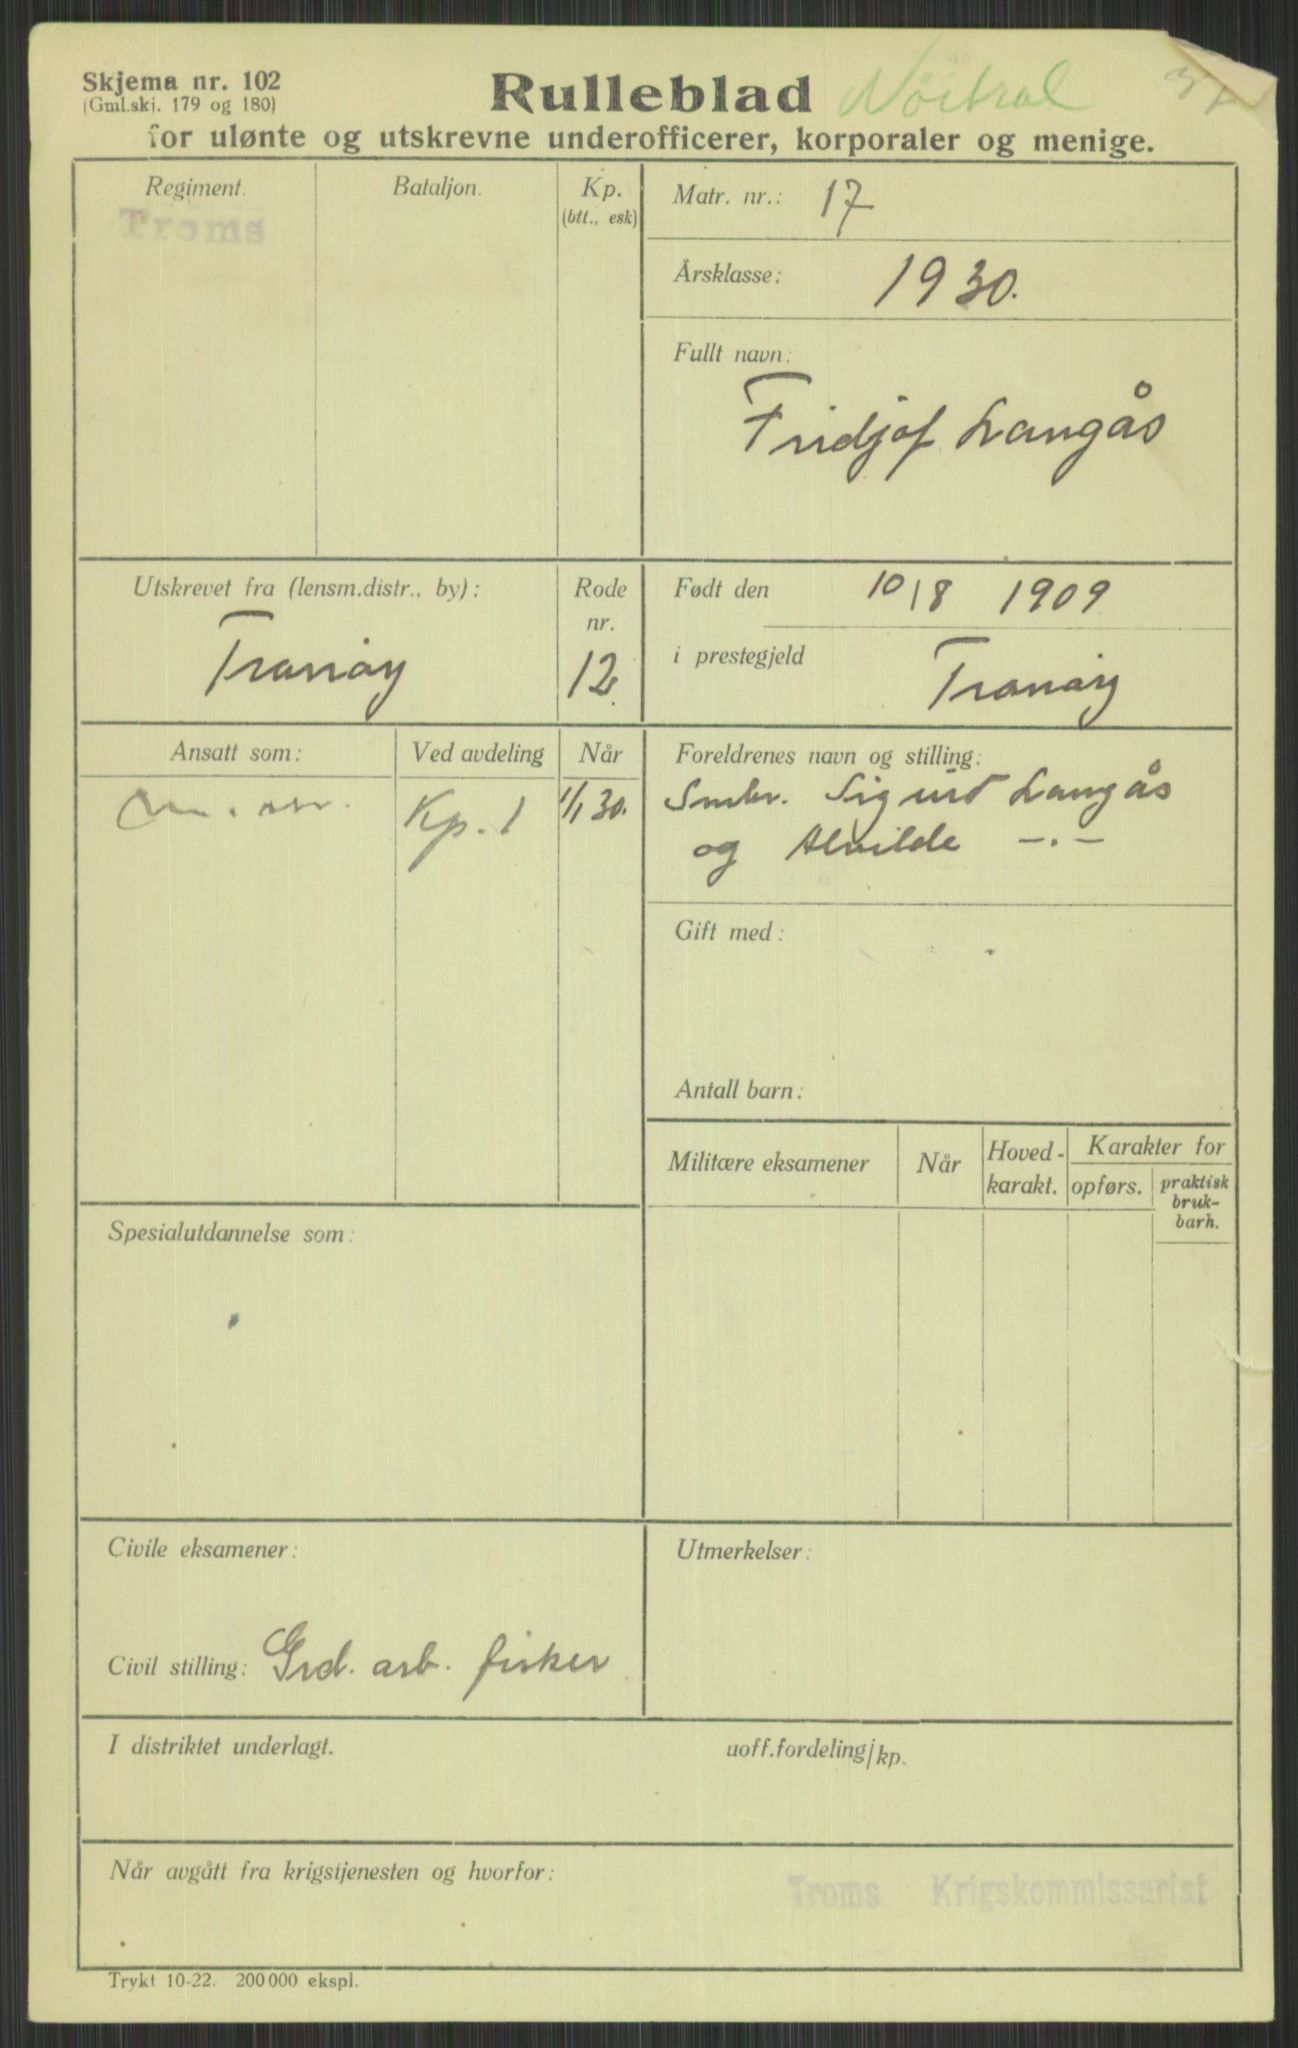 Skjema nr. 102
(Gml.skj. 179 og 180)
Rulleblad Nöitral
for ulønte og utskrevne underofficerer, korporaler og menige.
Regiment.
Troms
Bataljon.
Kp.
(btt., esk)
Matr. nr.: 17
Årsklasse: 1930.
Fullt navn:
Fridjof Langås
Utskrevet fra (lensm.distr., by):
Tranöy
Rode
nr.
12
Født den 10/8 1909
i prestegjeld Tranöy
Ansatt som:
Ved avdeling
Kp. 1
Når
1/1 30.
Foreldrenes navn og stilling:
Smbr. Sigurd Langås
og Alvilde -.-
Gift med:
Antall barn:
Militære eksamener
Når
Hoved-
karakt.
Karakter for
opførs.
praktisk
bruk-
barh.
Spesialutdannelse som:
Civile eksamener:
Civil stilling: Grd. arb. fisker
Utmerkelser:
I distriktet underlagt.
uoff.fordeling/kp.
Når avgått fra krigstjenesten og hvorfor:
Troms Krigskommissariat
Trykt 10-22. 200 000 ekspl.